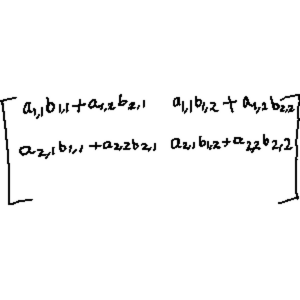 a₁,₁b₁,₁+a₁,₂b₂,₁ a₁,₁b₁,₂+a₁,₂b₂,₂
a₂,₁b₁,₁+a₂,₂b₂,₁ a₂,₁b₁,₂+a₂,₂b₂,₂